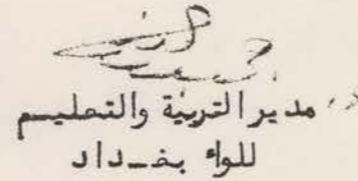 مدير التربية والتعليم
للواء بغداد